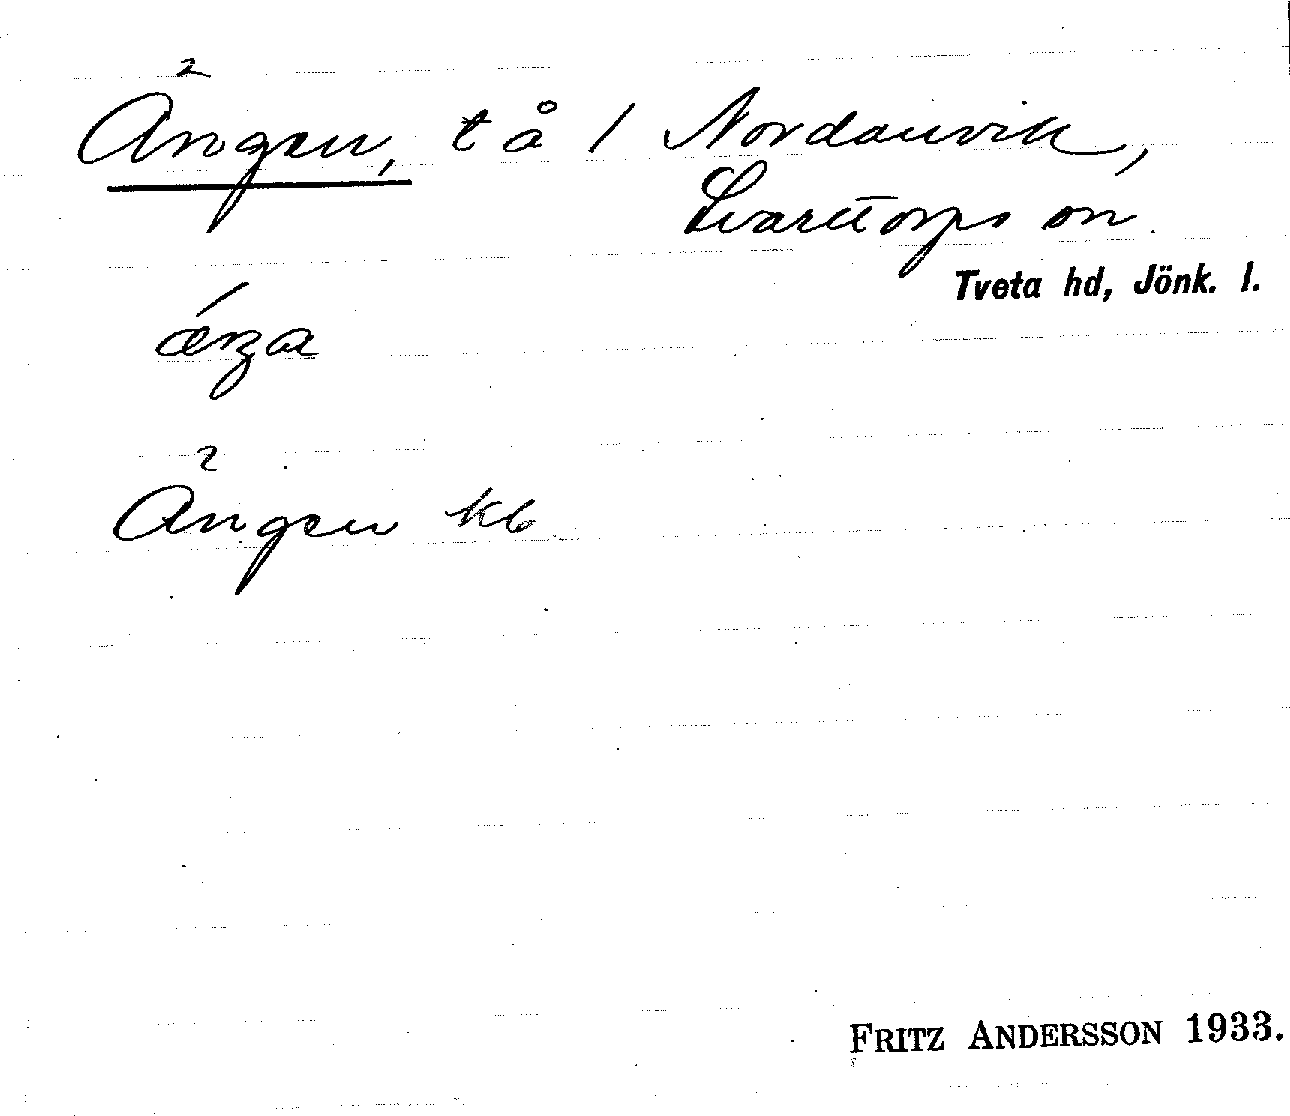 Ängen, t å 1 Nordanvik,
Svarttorps sn.
Tveta hd, Jönk. l.
Ängen kb
FRITZ ANDERSSON 1933.